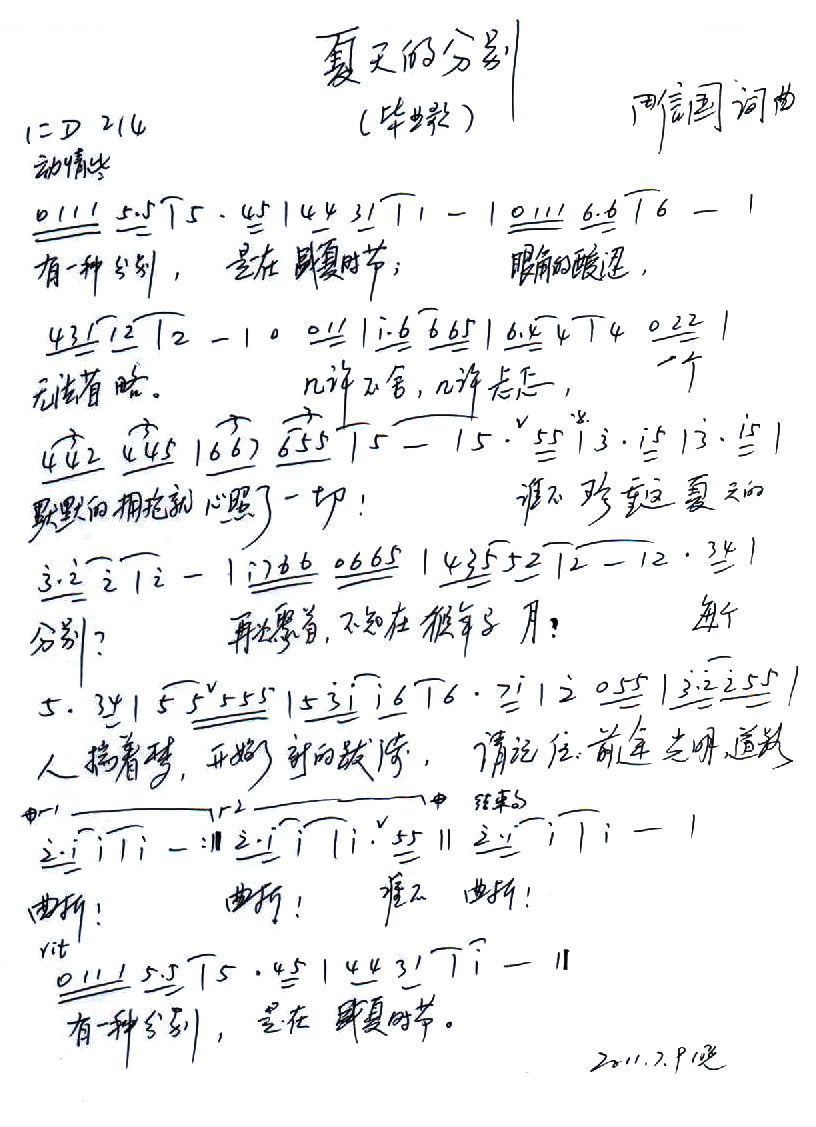 夏天的分别
(毕业歌) 词曲
1=D 2/4
动情地
0111 5.5 | 5 · 45 | 44 31 | 1 - | 0111 6.6 | 6 - |
有一种分别, 是在盛夏时节; 眼角的酸涩,
431 12 | 2 - | 0 011 | i.6 665 | 6.4 4 | 4 022 |
无法省略。 几许不舍,几许忐忑, 一个
442 445 | 667 655 | 5 - | 5 · 55 | 3 · i5 | 3 · i5 |
默默的拥抱就心照了一切! 谁不珍重这夏天的
3.2 2 | 2 - | i766 0665 | 435 52 | 2 - | 2 · 34 |
分别? 再次聚首,不知在猴年马月? 每个
5 · 34 | 5 5 555 | 53i i6 | 6 · 7i | 2 055 | 3.2 255 |
人揣着梦,开始了新的跋涉, 请记住:前途光明、道路
1 2 结束句
2.i i | i - :|| 2.i i | i · 55 || 2.i i | i - |
曲折! 曲折! 谁不 曲折!
rit
0111 5.5 | 5 · 45 | 44 31 | i - ||
有一种分别,是在盛夏时节。
2011.7.9晚